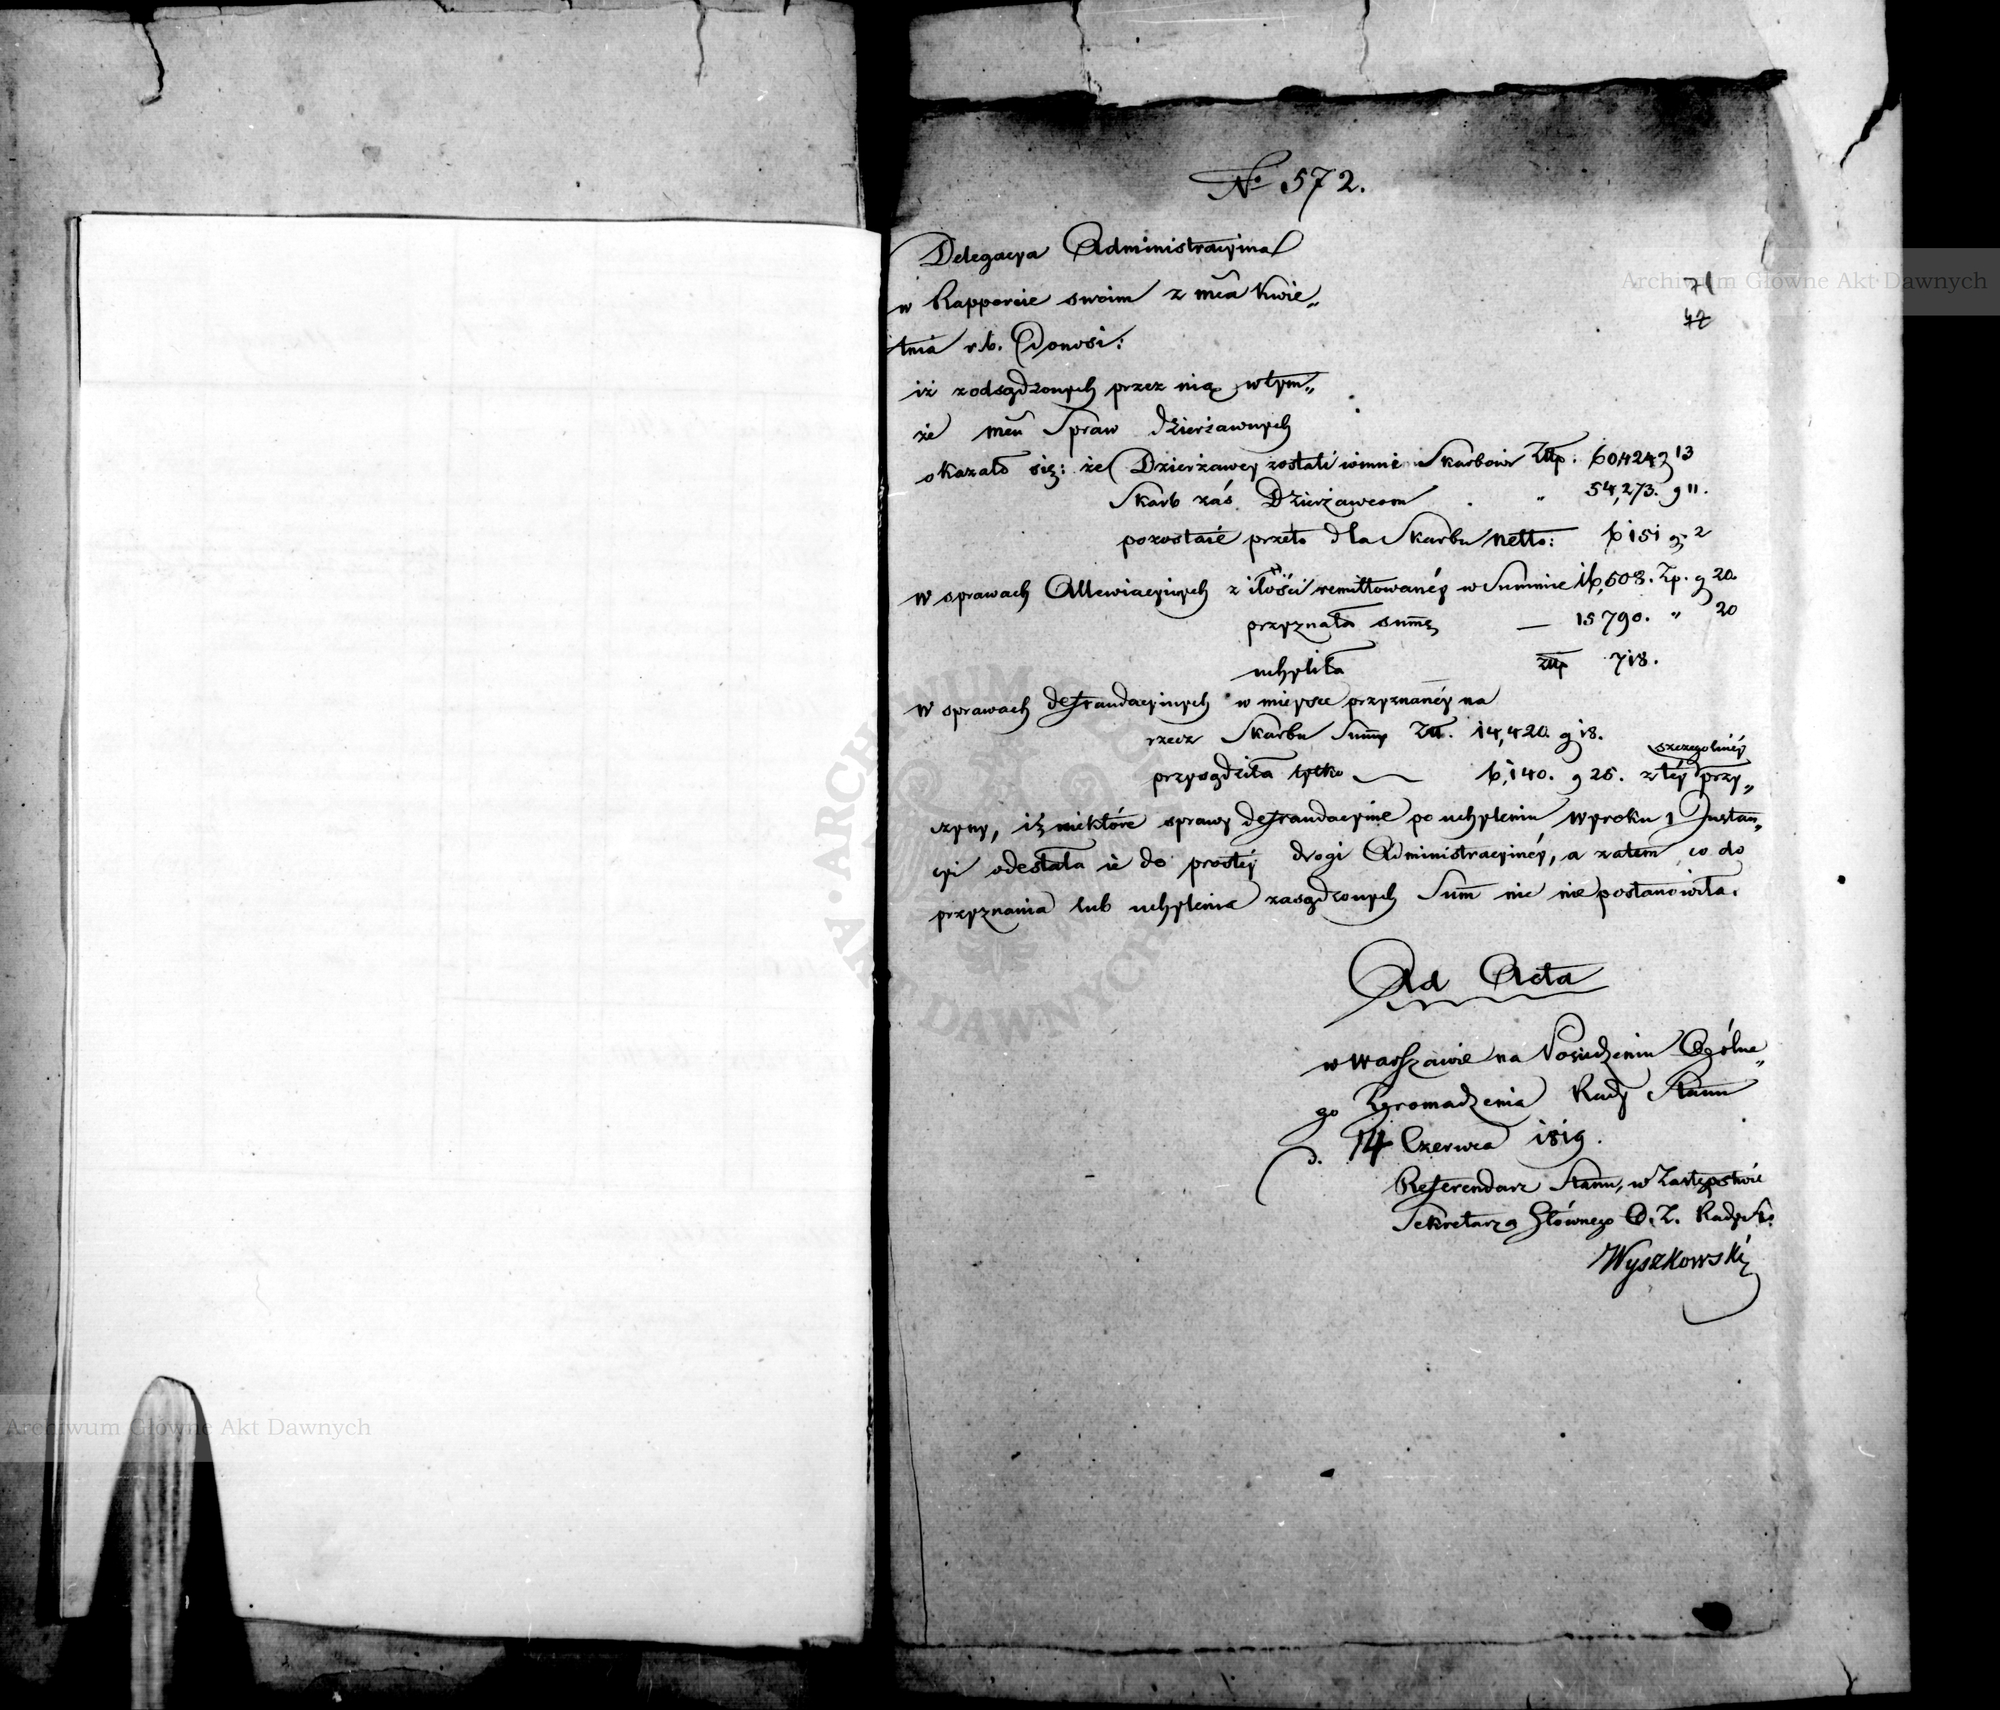 No 572.
Delegacya Administracyina
w Rapporcie swoim z mca Kwie„
tnia r.b. Donosi:
71
47
iż z odsądzonych przez nią w tym„
że mcu Spraw Dzierżawnych
okazało się: że Dzierżawcy zostali winni Skarbowi Złp: 60,424 g 13
Skarb zaś Dzierżawcom . „ 54,273. g 11.
pozostaie przeto dla Skarbu netto: 6151 g 2
w sprawach Allewiacyinych z ilości remittowanéy w Summie 16,508. Zp. g 20.
przyznała summę — 15790. „ 20
uchyliła złp 718.
w sprawach defraudacyinych w mieysce przyznanéy na
rzecz Skarbu Summy Zł. 14,420. g 18.
szczegolnéy
przysądziła tylko — 6,140. g 25. z téy przy„
czyny, iż niektóre sprawy defraudacyine po uchyleniu wyroku 1 Instan„
cyi odesłała ie do prostéy drogi Administracyinéy, a zatem co do
przyznania lub uchylenia zasądzonych Summ nic nie postanowiła.
Ad Acta
w Warszawie na Posiedzeniu Ogólne„
go Zgromadzenia Rady Stanu
d. 14 Czerwca 1819.
Referendarz Stanu, w Zastępstwie
Sekretarza Głównego O. Z. Rady St.
Wyszkowski
Archiwum Główne Akt Dawnych
Archiwum Główne Akt Dawnych